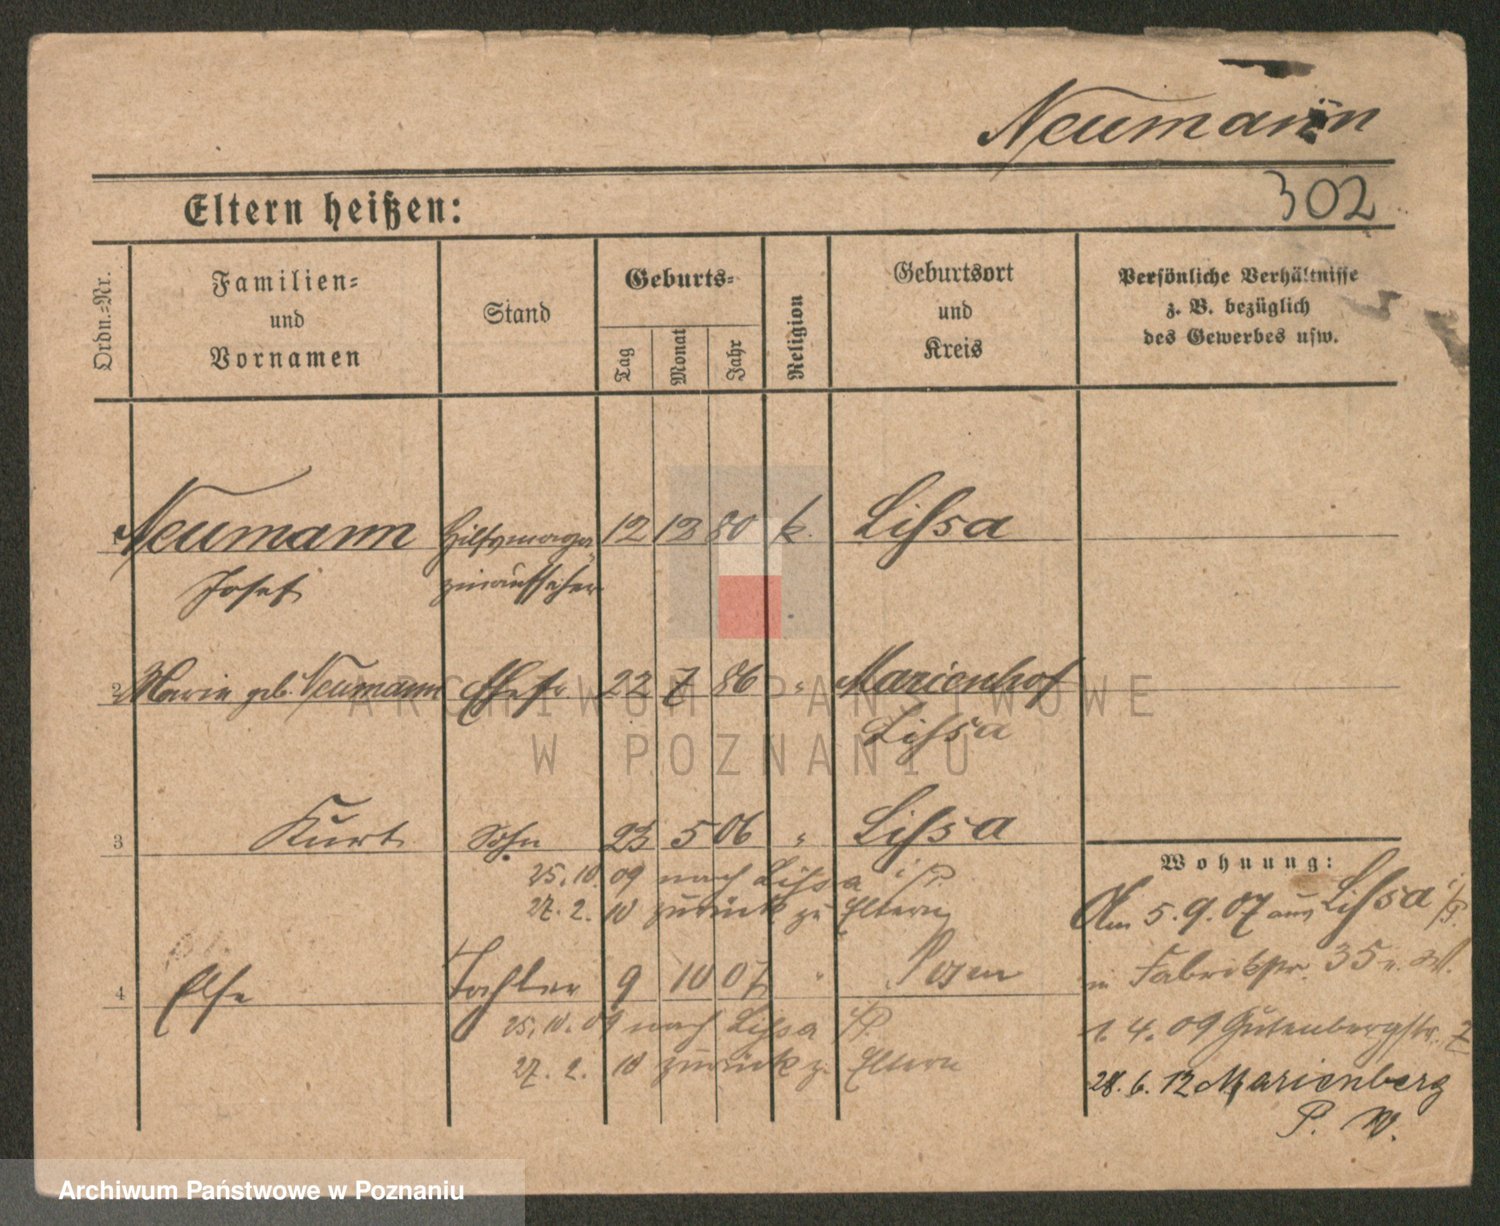 Neumann
302
Eltern heißen:
Ordn.=Nr.
Familien=
und
Vornamen
Stand
Geburts=
Tag
Monat
Jahr
Religion
Geburtsort
und
Kreis
Persönliche Verhältnisse
z. B. bezüglich
des Gewerbes usw.
Neumann Hilfsmaga- 12 12 80 k. Lissa
Josef zinaufseher
2 Marie geb. Neumann Ehefr 22 7 86 " Marienhof
Lissa
3 Kurt Sohn 23 5 06 " Lissa
25. 10. 09 nach Lissa i/P.
27. 2. 10 zurück zu Eltern
4 Else Tochter 9 10 07 " Posen
25. 10. 09 nach Lissa i/P.
27. 2. 10 zurück z. Eltern
Wohnung:
Am 5. 9. 07 aus Lissa i/P.
in Fabrikstr. 35
1. 4. 09 Gutenbergstr. 7
28. 6. 12 Marienberg
P. W.
ARCHIWUM PAŃSTWOWE
W POZNANIU
Archiwum Państwowe w Poznaniu